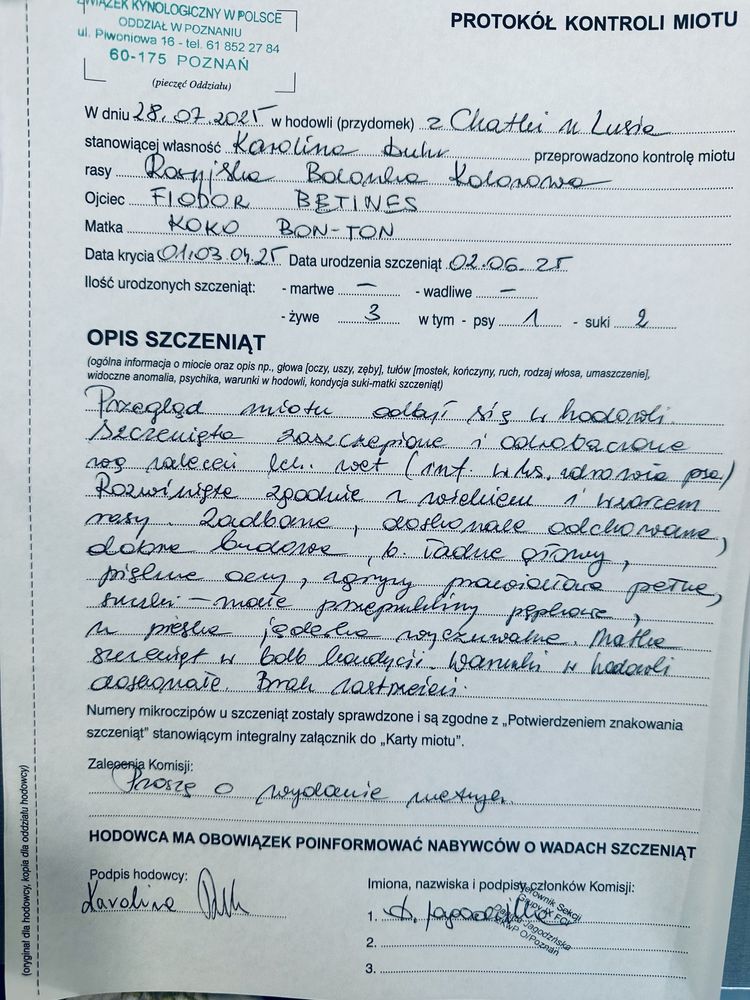 ZWIĄZEK KYNOLOGICZNY W POLSCE
ODDZIAŁ W POZNANIU
ul. Piwoniowa 16 - tel. 61 852 27 84
60-175 POZNAŃ
(pieczęć Oddziału)
PROTOKÓŁ KONTROLI MIOTU
W dniu 28.07.2025 w hodowli (przydomek) z Chatki u Lusia
stanowiącej własność Karolina przeprowadzono kontrolę miotu
rasy Rosyjska Bolonka Kolorowa
Ojciec FIODOR BETINES
Matka KOKO BON-TON
Data krycia 01.03.04.25 Data urodzenia szczeniąt 02.06.25
Ilość urodzonych szczeniąt: - martwe — - wadliwe —
- żywe 3 w tym - psy 1 - suki 2
OPIS SZCZENIĄT
(ogólna informacja o miocie oraz opis np., głowa [oczy, uszy, zęby], tułów [mostek, kończyny, ruch, rodzaj włosa, umaszczenie],
widoczne anomalia, psychika, warunki w hodowli, kondycja suki-matki szczeniąt)
Przegląd miotu odbył się w hodowli.
Szczenięta zaszczepione i odrobaczone
wg zaleceń lek. wet (inf. w ks. zdrowia psa)
Rozwinięte zgodnie z wiekiem i wzorcem
rasy. Zadbane, doskonale odchowane,
dobra budowa, b. ładne głowy,
piękne oczy, zgryzy prawidłowe pełne,
suczki – małe przepukliny pępkowe,
u pieska jąderka wyczuwalne. Matka
szczeniąt w bdb kondycji. Warunki w hodowli
doskonałe. Brak zastrzeżeń.
Numery mikroczipów u szczeniąt zostały sprawdzone i są zgodne z „Potwierdzeniem znakowania
szczeniąt” stanowiącym integralny załącznik do „Karty miotu”.
Zalecenia Komisji:
Proszę o wydanie metryk.
HODOWCA MA OBOWIĄZEK POINFORMOWAĆ NABYWCÓW O WADACH SZCZENIĄT
Podpis hodowcy:
Karolina
Imiona, nazwiska i podpisy członków Komisji:
1. D. Jagodzińska
Kierownik Sekcji
Jagodzińska
ZKwP O/Poznań
2.
3.
(oryginał dla hodowcy, kopia dla oddziału hodowcy)